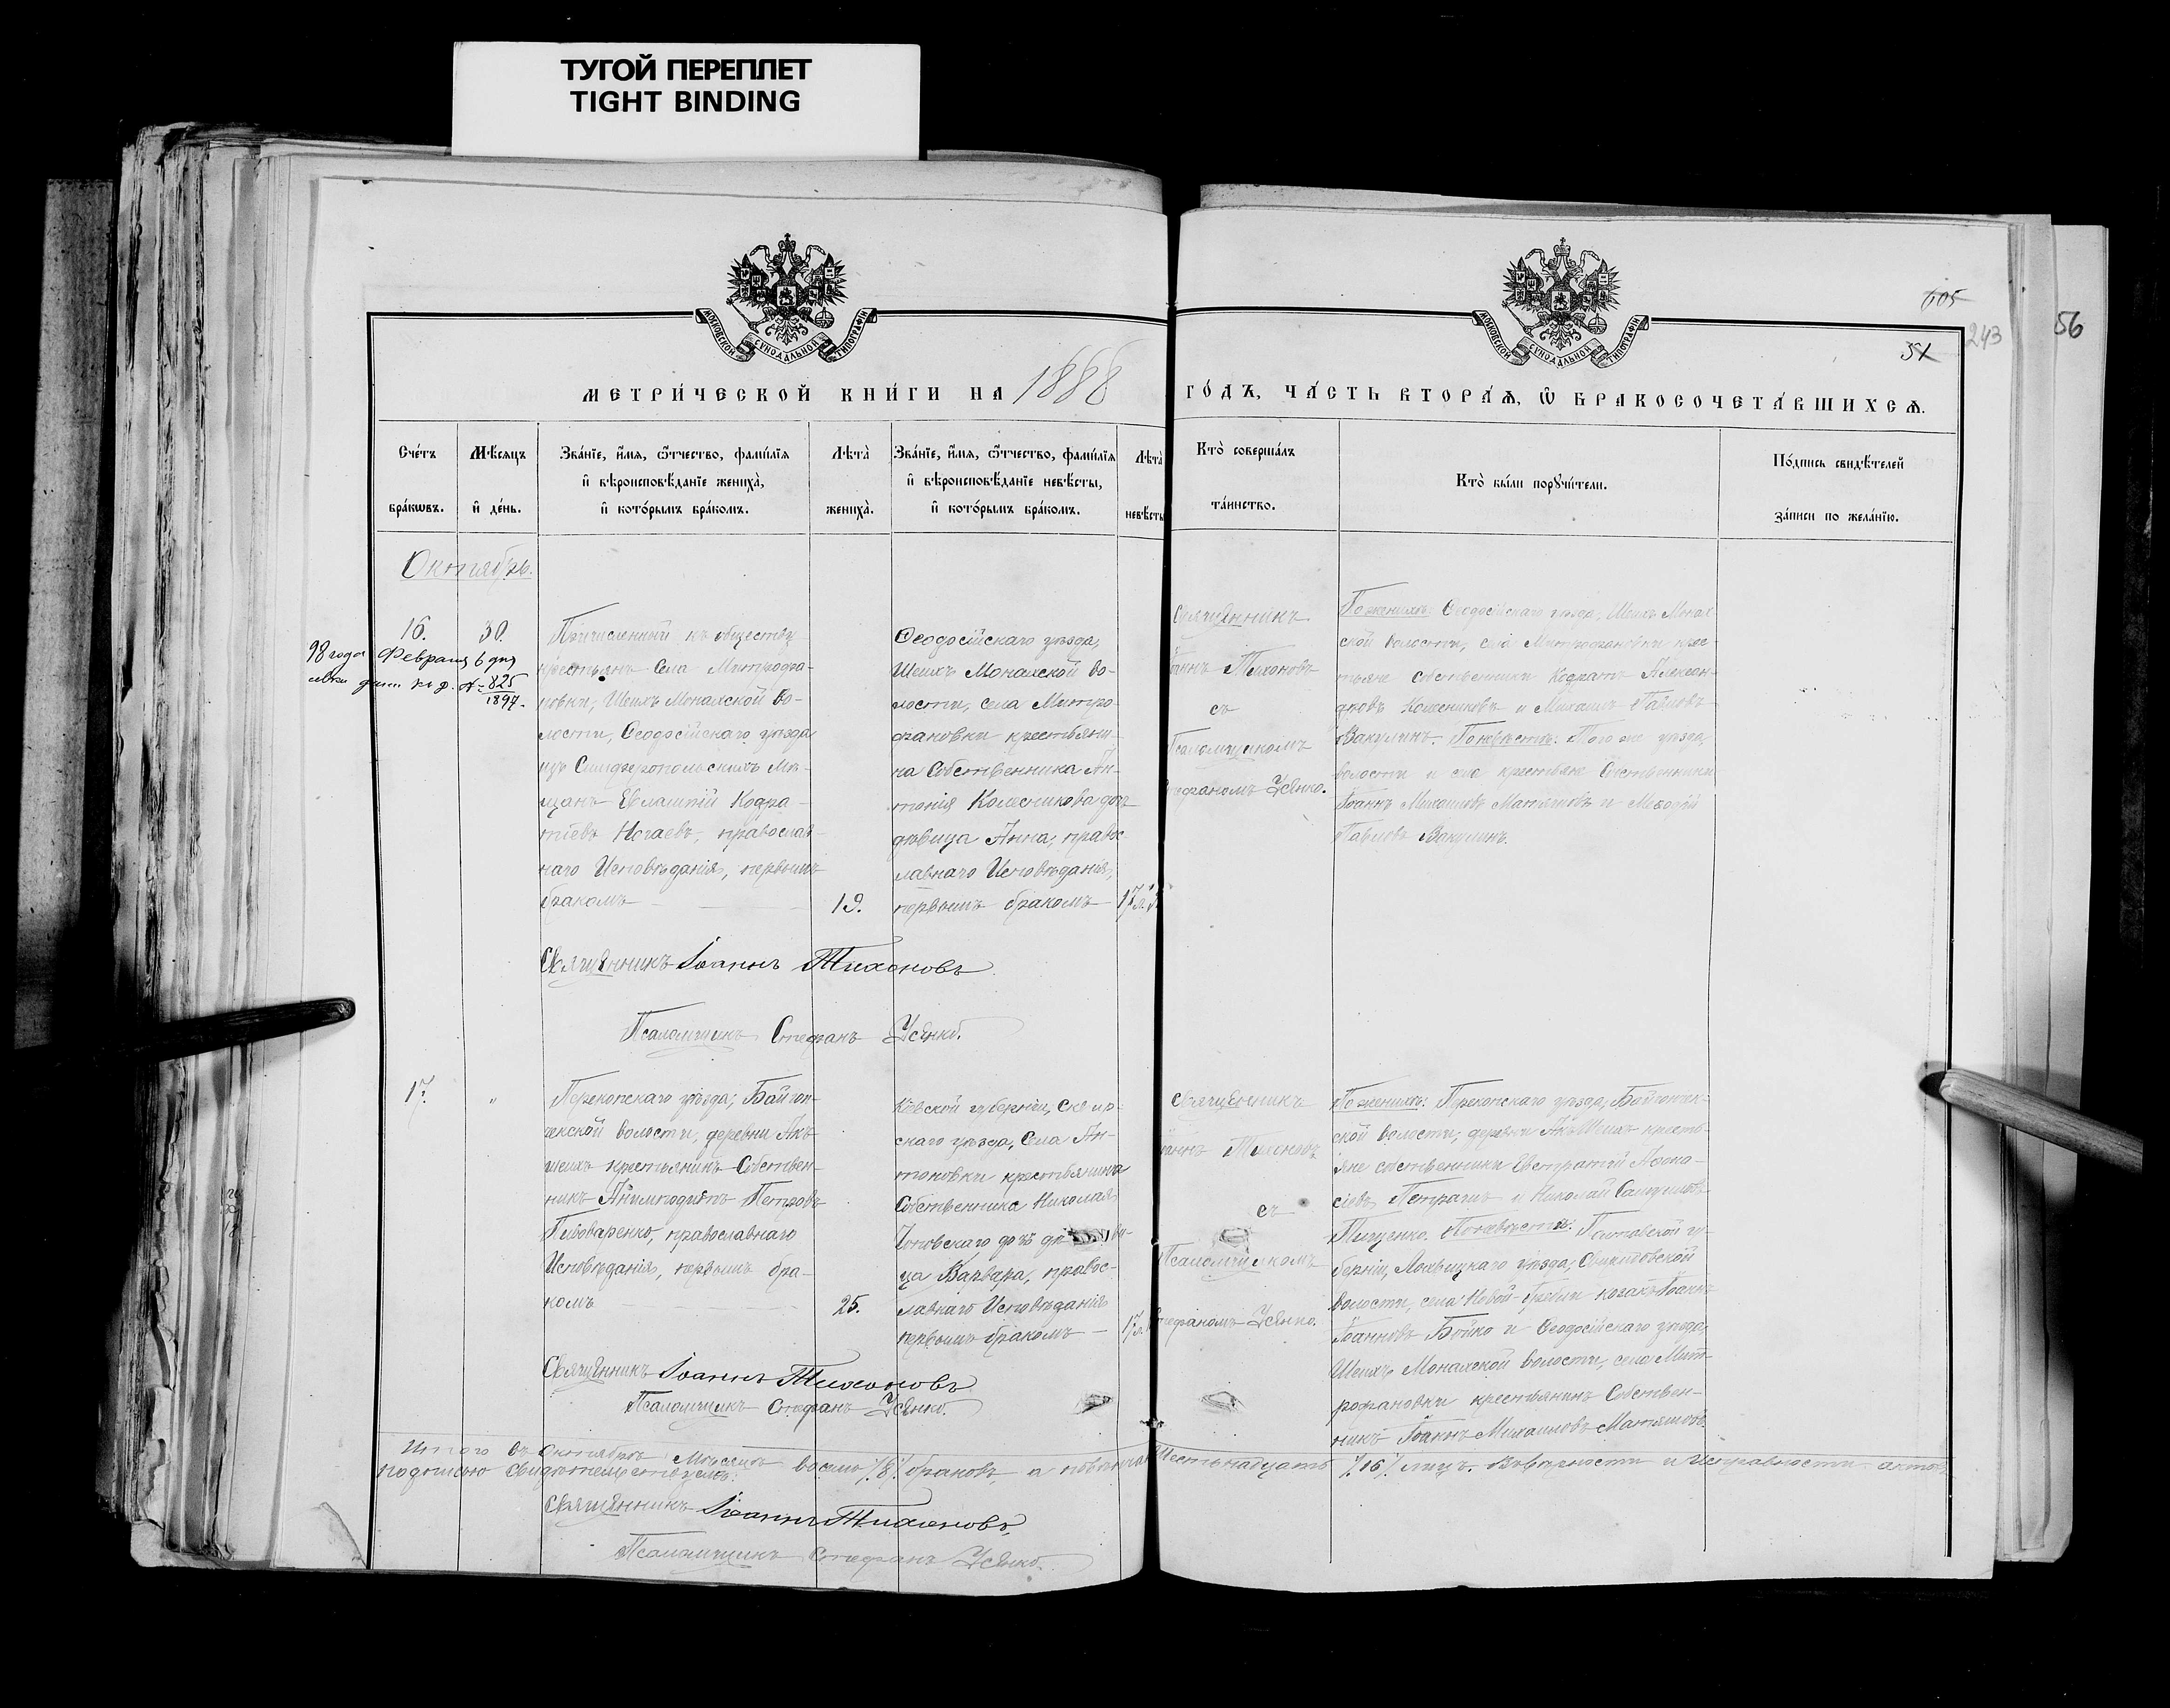 ТУГОЙ ПЕРЕПЛЕТ
TIGHT BINDING
МОСКОВСКОЙ СѴНОДАЛЬНОЙ ТИПОГРАФІИ
МОСКОВСКОЙ СѴНОДАЛЬНОЙ ТИПОГРАФІИ
605
243
56
51
МЕТРИ́ЧЕСКОЙ КНИ́ГИ НА 1888 ГО́ДЪ, ЧА́СТЬ ВТОРА́Ѧ, Ѿ БРАКОСОЧЕТА́ВШИХСѦ.
Сче́тъ
бра́кѡвъ.
Мѣ́сяцъ
и҆ де́нь.
Зва́нїе, и҆́мѧ, ѻ҆́тчество, фами́лїѧ
и҆ вѣроисповѣ́данїе жениха̀,
и҆ кото́рымъ бра́комъ.
Лѣ́та̀
жениха̀.
Зва́нїе, и҆́мѧ, ѻ҆́тчество, фами́лїѧ
и҆ вѣроисповѣ́данїе невѣ́сты,
и҆ кото́рымъ бра́комъ.
Лѣ́та̀
невѣ́сты
Кто̀ соверша́лъ
та́инство.
Кто̀ бы́ли порꙋчи́тели.
По́дпись свидѣ́телей
за́писи по жела́нїю.
Октябрь.
16.
30.
98 года Февраля 6 дня
к д. № 825
1897.
Причисленный къ обществу
крестьянъ Села Митрофа-
новки, Шеихъ Монахской во-
лости, Ѳеодосійскаго уѣзда
изъ Симферопольскихъ Мѣ-
щанъ Евлампій Кодра-
тіевъ Ногаевъ, православ-
наго Исповѣданія, первымъ
бракомъ
19.
Ѳеодосійскаго уѣзда,
Шеихъ Монахской во-
лости, села Митро-
фановки крестьяни-
на Собственника Ан-
тонія Колесникова дочь
дѣвица Анна, правос-
лавнаго Исповѣданія,
первымъ бракомъ
17
Священникъ
Іоаннъ Тихоновъ
съ
Псаломщикомъ
Стефаномъ Усенко.
По женихѣ: Ѳеодосійскаго уѣзда, Шеихъ Монах-
ской волости, села Митрофановки крес-
тьяне собственники Кодратъ Алексан-
дровъ Колесниковъ и Михаилъ Павловъ
Вакулинъ. По невѣстѣ: Того же уѣзда,
волости и села крестьяне Собственники
Іоаннъ Михаиловъ Матяшовъ и Меѳодій
Павловъ Вакулинъ.
Священникъ Іоаннъ Тихоновъ
Псаломщикъ Стефанъ Усенко.
17.
"
Перекопскаго уѣзда, Байгон-
чекской волости, деревни Акъ
шеихъ крестьянинъ Собствен-
никъ Анемподистъ Петровъ
Пивоваренко, православнаго
Исповѣданія, первымъ бра-
комъ
25.
Кіевской губерніи, Сквир-
скаго уѣзда, Села Ан-
тоновки крестьянина
Собственника Николая
дочь дѣви-
ца Варвара, правос-
лавнаго Исповѣданія
первымъ бракомъ
17
Священникъ
Іоаннъ Тихоновъ
съ
Псаломщикомъ
Стефаномъ Усенко.
По женихѣ: Перекопскаго уѣзда, Байгончек-
ской волости, деревни Акъ Шеихъ кресть-
яне собственники Евстратій
Петрашъ и Николай
Тищенко. По невѣстѣ: Полтавской гу-
берніи, Лохвицкаго уѣзда,
волости, села Новой-Гребли козакъ Іоаннъ
Іоанновъ Бойко и Ѳеодосійскаго уѣзда,
Шеихъ Монахской волости, села Мит-
рофановки крестьянинъ Собствен-
никъ Іоаннъ Михаиловъ Матяшовъ
Священникъ Іоаннъ Тихоновъ
Псаломщикъ Стефанъ Усенко.
Итого въ Октябрѣ Мѣсяцѣ восемь /8/ браковъ, а повѣнчан Шестьнадцать /16/ лицъ. Въ вѣрности и Исправности актовъ
подписью Свидѣтельствуемъ:
Священникъ Іоаннъ Тихоновъ,
Псаломщикъ Стефанъ Усенко.